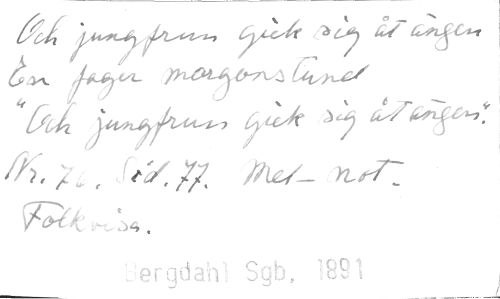 Och jungfrun gick sig åt ängen
En fager morgonstund
"Och jungfrun gick sig åt ängen".
Nr. 76. Sid. 77. Mel-not.
Folkvisa.
Bergdahl Sgb, 1891